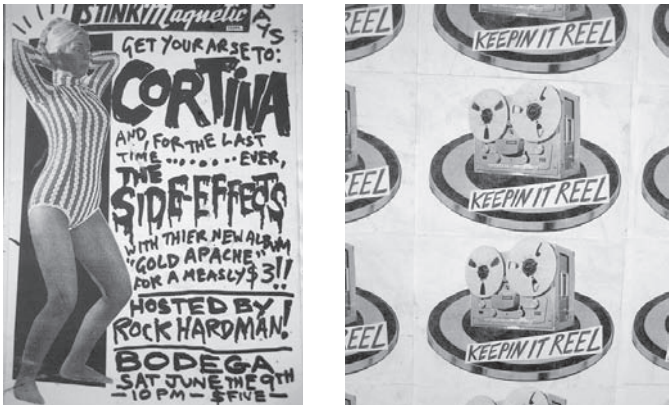 STINK Magnetic
GET YOUR ARSE TO:
CORTINA
AND, FOR THE LAST
TIME ........ EVER,
THE
SIDE-EFFECTS
WITH THIER NEW ALBUM
"GOLD APACHE"
FOR A MEASLY $3!!
HOSTED BY
ROCK HARDMAN!
BODEGA
SAT JUNE THE 9TH
— 10 PM — $FIVE —
EEL
KEEPIN IT REEL
EEL
KEEPIN IT REEL
EEL
KEEPIN IT REEL